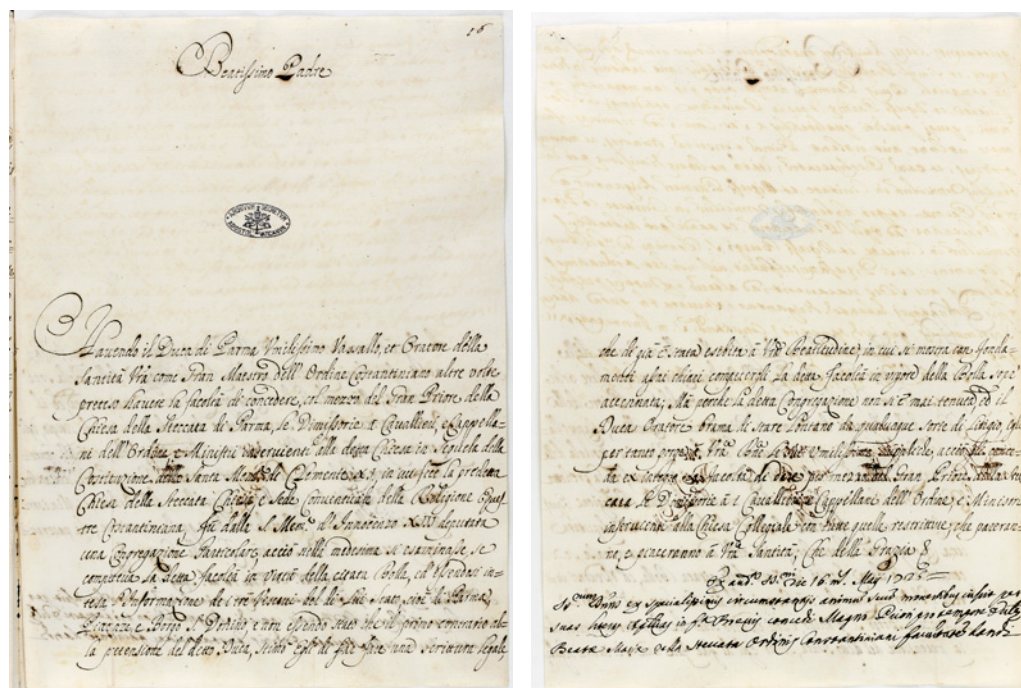 16
Beatissimo Padre
ARCHIVUM SECRETUM
APOSTOL. VATICANUM
Havendo il Duca di Parma Vmilissimo Vassallo, et Oratore della
Santità Vrã come Gran Maestro dell'Ordine Costantiniano altre volte
preteso havere la facoltà di concedere, col mezzo del Gran Priore della
Chiesa della Steccata di Parma, le Dimissorie à Cavallieri, e Cappella-
ni dell'Ordine e Ministri inservienti alla detta Chiesa in seguela della
Costituzione della Santa Mem. di Clemente XI, in cui fece la predetta
Chiesa della Steccata Chiesa, e Sede Conventuale della Religione Eques-
tre Costantiniana, fù dalla S. Mem. di Innocenzo XIII deputata
una Congregazione Particolare, acciò nella medesima si esaminasse, se
competeva la detta facoltà in vigore della citata Bolla, ed essendosi in-
tesa l'Informazione de i trè Vescovi del di Lui Stato, cioè di Parma,
Piacenza e Borgo S. Donino, e non essendo stato che il primo contrario al-
la pretensione del detto Duca, stimò egli di far fare una scrittura legale,
che di già è stata esibita à Vrã Beatitudine, in cui si mostra con fonda-
menti assai chiari competersi la detta facoltà in vigore della Bolla, come
accennata; Mà perche la detta Congregazione non si è mai tenuta, ed il
Duca Oratore brama di stare lontano da qualunque sorte di litigio, egli
per tanto porge à Vrã
facoltà di
Gran Priore della Stec-
cata le Dimissorie à i Cavallieri, Cappellani dell'Ordine, e Ministri
inservienti alla Chiesa Collegiale con tutte quelle restrittive, che pareran-
no, e piaceranno à Vrã Santità; Che della Grazia &
Ex aud. SS.mi die 16 m. Maij 1725
SS.mus Dnus ex specialissimis circumstantiis animum suum moventibus
suas in forma Brevis concedi Magno Priori pro tempore Eccl.
Beatae Mariae della Steccata Ordinis Constantiniani facultatem